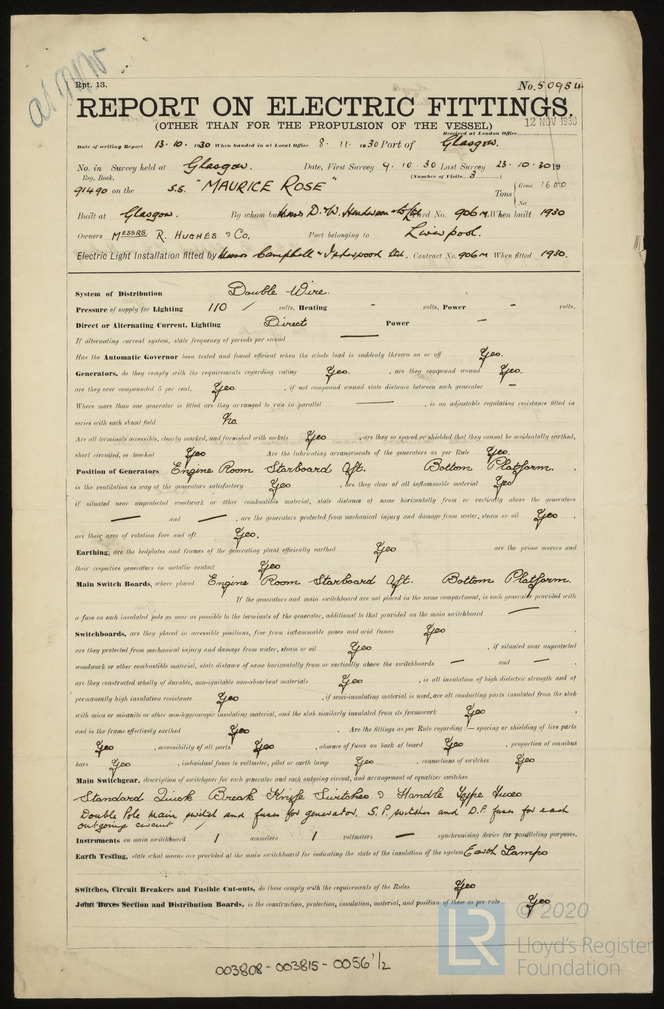 Rpt. 13.
No. 50954
REPORT ON ELECTRIC FITTINGS.
(OTHER THAN FOR THE PROPULSION OF THE VESSEL)
Received at London Office
12 NOV 1930
Date of writing Report 13.10.1930 When handed in at Local Office 8.11.1930 Port of Glasgow.
No. in Survey held at Glasgow. Date, First Survey 4.10.30 Last Survey 23.10.30 19
Reg. Book. (Number of Visits 3)
91490 on the S.S. "MAURICE ROSE" Tons { Gross 1600
Net
Built at Glasgow. By whom built Messrs D. & W. Henderson & Co Ltd Yard No. 906M. When built 1930
Owners MESSRS R. HUGHES & CO. Port belonging to Liverpool.
Electric Light Installation fitted by Messrs Campbell & Isherwood Ltd. Contract No. 906M When fitted 1930.
System of Distribution Double Wire.
Pressure of supply for Lighting 110 volts, Heating - volts, Power - volts.
Direct or Alternating Current, Lighting Direct Power -
If alternating current system, state frequency of periods per second —
Has the Automatic Governor been tested and found efficient when the whole load is suddenly thrown on or off Yes.
Generators, do they comply with the requirements regarding rating Yes. , are they compound wound Yes.
are they over compounded 5 per cent. Yes , if not compound wound state distance between each generator —
Where more than one generator is fitted are they arranged to run in parallel — , is an adjustable regulating resistance fitted in
series with each shunt field No.
Are all terminals accessible, clearly marked, and furnished with sockets Yes , are they so spaced or shielded that they cannot be accidentally earthed,
short circuited, or touched Yes Are the lubricating arrangements of the generators as per Rule Yes.
Position of Generators Engine Room Starboard Aft. Bottom Platform.
is the ventilation in way of the generators satisfactory Yes , are they clear of all inflammable material Yes
if situated near unprotected woodwork or other combustible material, state distance of same horizontally from or vertically above the generators
— and — , are the generators protected from mechanical injury and damage from water, steam or oil Yes .
are their axes of rotation fore and aft Yes.
Earthing, are the bedplates and frames of the generating plant efficiently earthed Yes are the prime movers and
their respective generators in metallic contact Yes
Main Switch Boards, where placed Engine Room Starboard Aft. Bottom Platform.
If the generators and main switchboard are not placed in the same compartment, is each generator provided with
a fuse on each insulated pole as near as possible to the terminals of the generator, additional to that provided on the main switchboard —
Switchboards, are they placed in accessible positions, free from inflammable gases and acid fumes Yes
are they protected from mechanical injury and damage from water, steam or oil Yes , if situated near unprotected
woodwork or other combustible material, state distance of same horizontally from or vertically above the switchboards — and — ,
are they constructed wholly of durable, non-ignitable non-absorbent materials Yes , is all insulation of high dielectric strength and of
permanently high insulation resistance Yes , if semi-insulating material is used, are all conducting parts insulated from the slab
with mica or micanite or other non-hygroscopic insulating material, and the slab similarly insulated from its framework Yes ,
and is the frame effectively earthed Yes . Are the fittings as per Rule regarding :— spacing or shielding of live parts
Yes , accessibility of all parts Yes , absence of fuses on back of board Yes , proportion of omnibus
bars Yes , individual fuses to voltmeter, pilot or earth lamp Yes , connections of switches Yes
Main Switchgear, description of switchgear for each generator and each outgoing circuit, and arrangement of equalizer switches
Standard Quick Break Knife Switches & Handle Type Fuses
Double Pole main switch and fuses for generator. S.P. switches and D.P. fuses for each
outgoing circuit
Instruments on main switchboard 1 ammeters 1 voltmeters — synchronising device for paralleling purposes.
Earth Testing, state what means are provided at the main switchboard for indicating the state of the insulation of the system Earth Lamps
Switches, Circuit Breakers and Fusible Cut-outs, do these comply with the requirements of the Rules Yes
Joint Boxes Section and Distribution Boards, is the construction, protection, insulation, material, and position of these as per rule Yes
© 2020
LR
Lloyd's Register
Foundation
003808-003815-0056 1/2